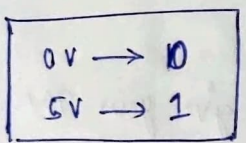 0V → 0
5V → 1